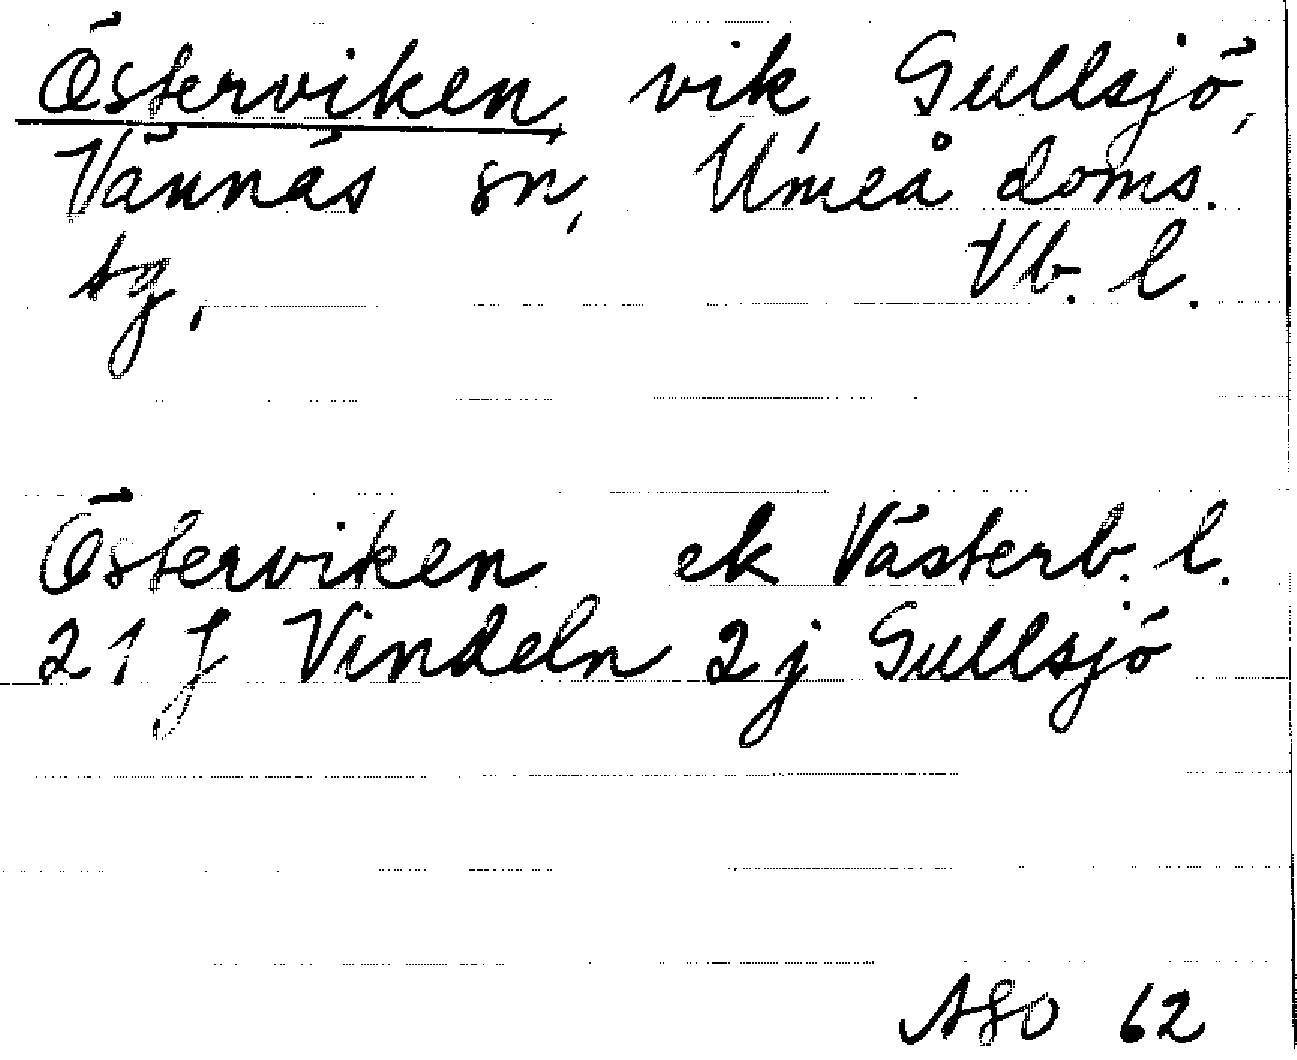 Österviken, vik, Gullsjö,
Vännäs sn, Umeå doms.
tg, Vb. l.
Österviken ek Västerb. l.
21 J Vindeln 2j Gullsjö
AGO 62